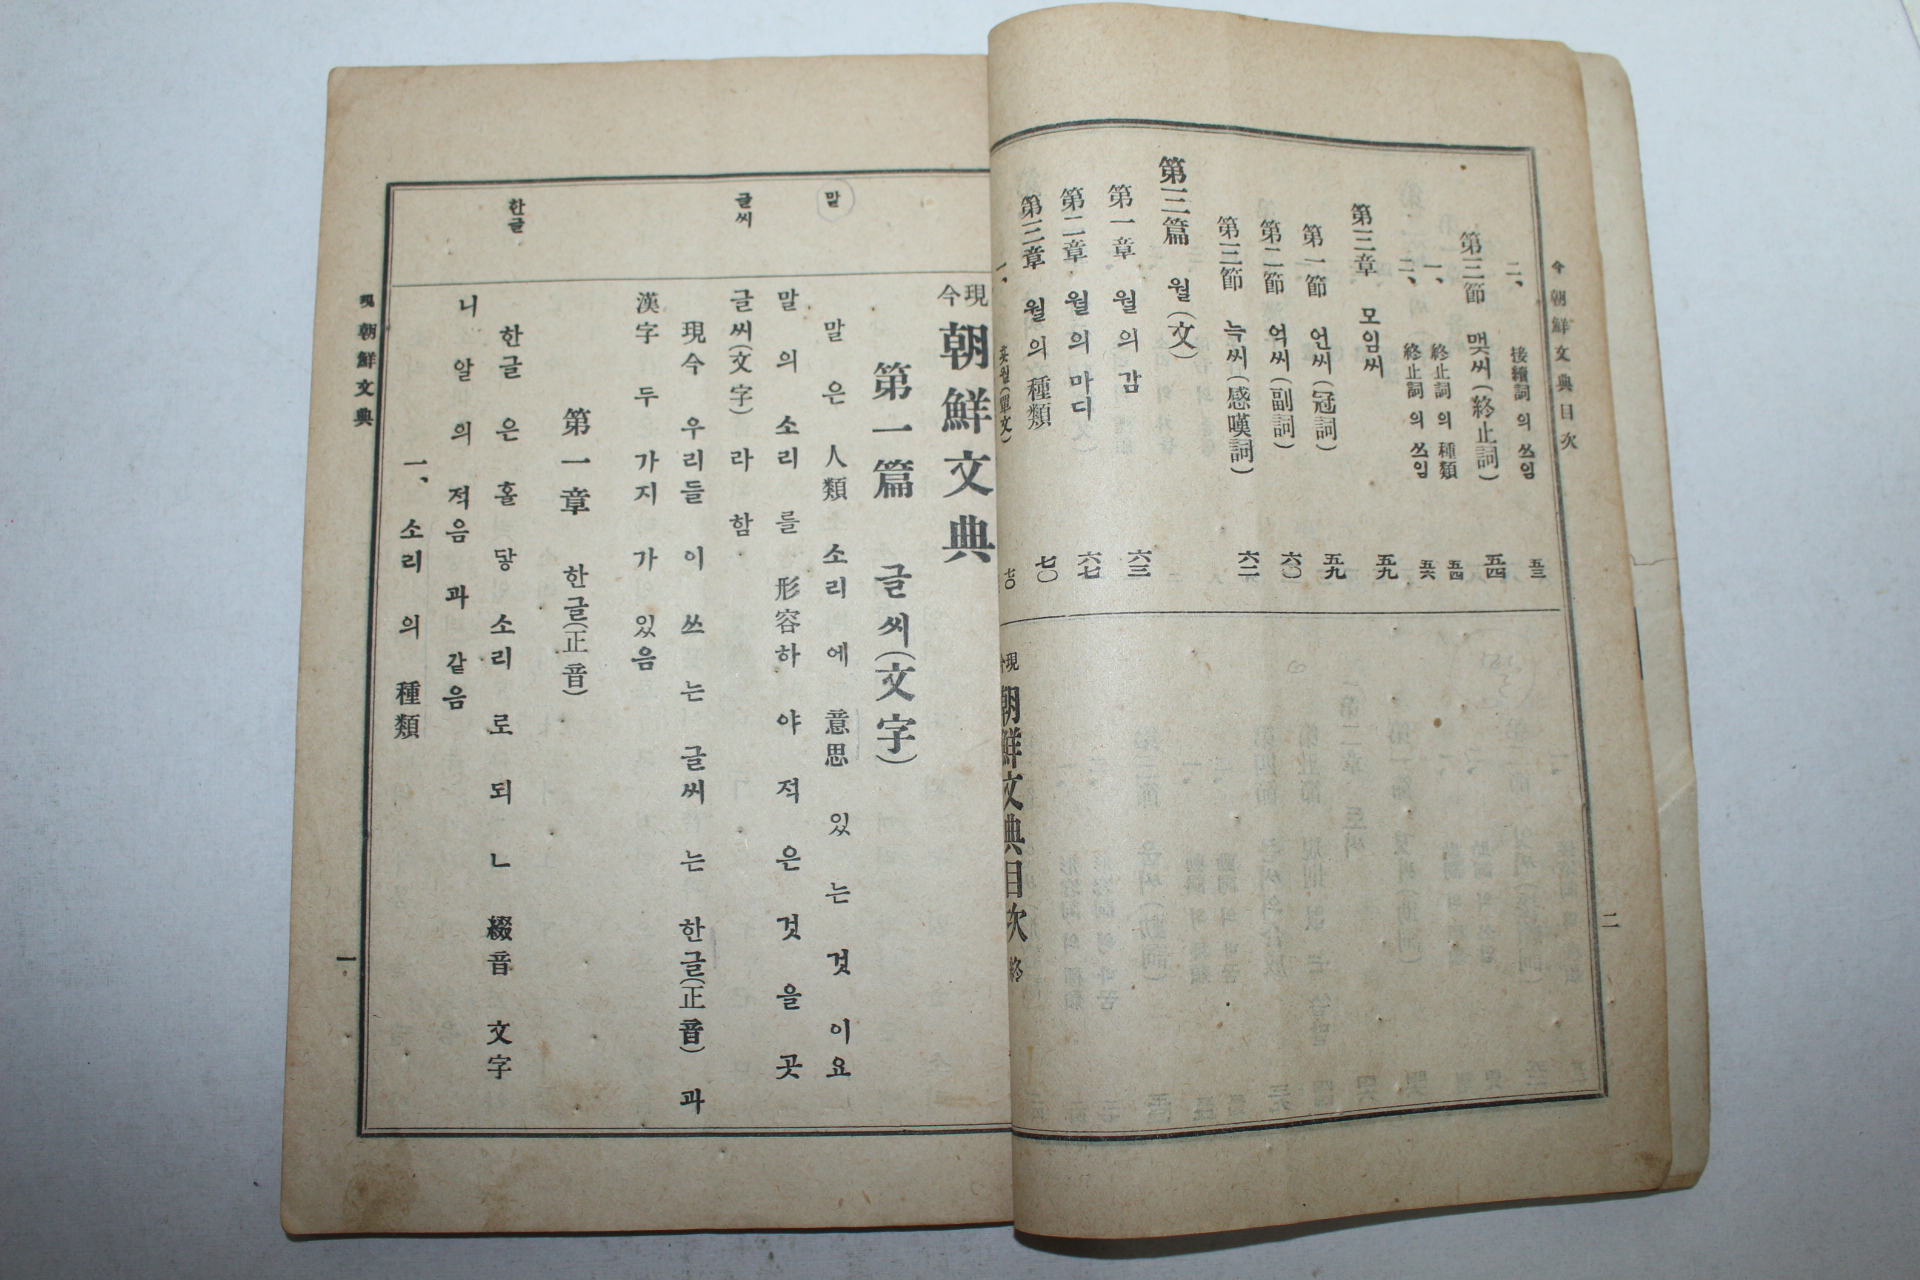 今 朝鮮文典目次
二、接續詞의쓰임 五三
第三節 맺씨(終止詞) 五四
一、終止詞의種類 五四
二、終止詞의쓰임 五六
第三章 모임씨 五九
第一節 언씨(冠詞) 五九
第二節 억씨(副詞) 六〇
第三節 늑씨(感嘆詞) 六二
第三篇 월(文)
第一章 월의감 六三
第二章 월의마디 六七
第三章 월의種類 七〇
一、홋월(單文) 七〇
現今 朝鮮文典目次 終
二
現今 朝鮮文典
第一篇 글씨(文字)
말
말은人類소리에意思있는것이요
말의소리를形容하야적은것을곳
글씨
글씨(文字)라함
現今우리들이쓰는글씨는한글(正音)과
漢字두가지가있음
第一章 한글(正音)
한글
한글은홀닿소리로되ㄴ綴音文字
니알의적음과같음
一、소리의種類
現 朝鮮文典
一